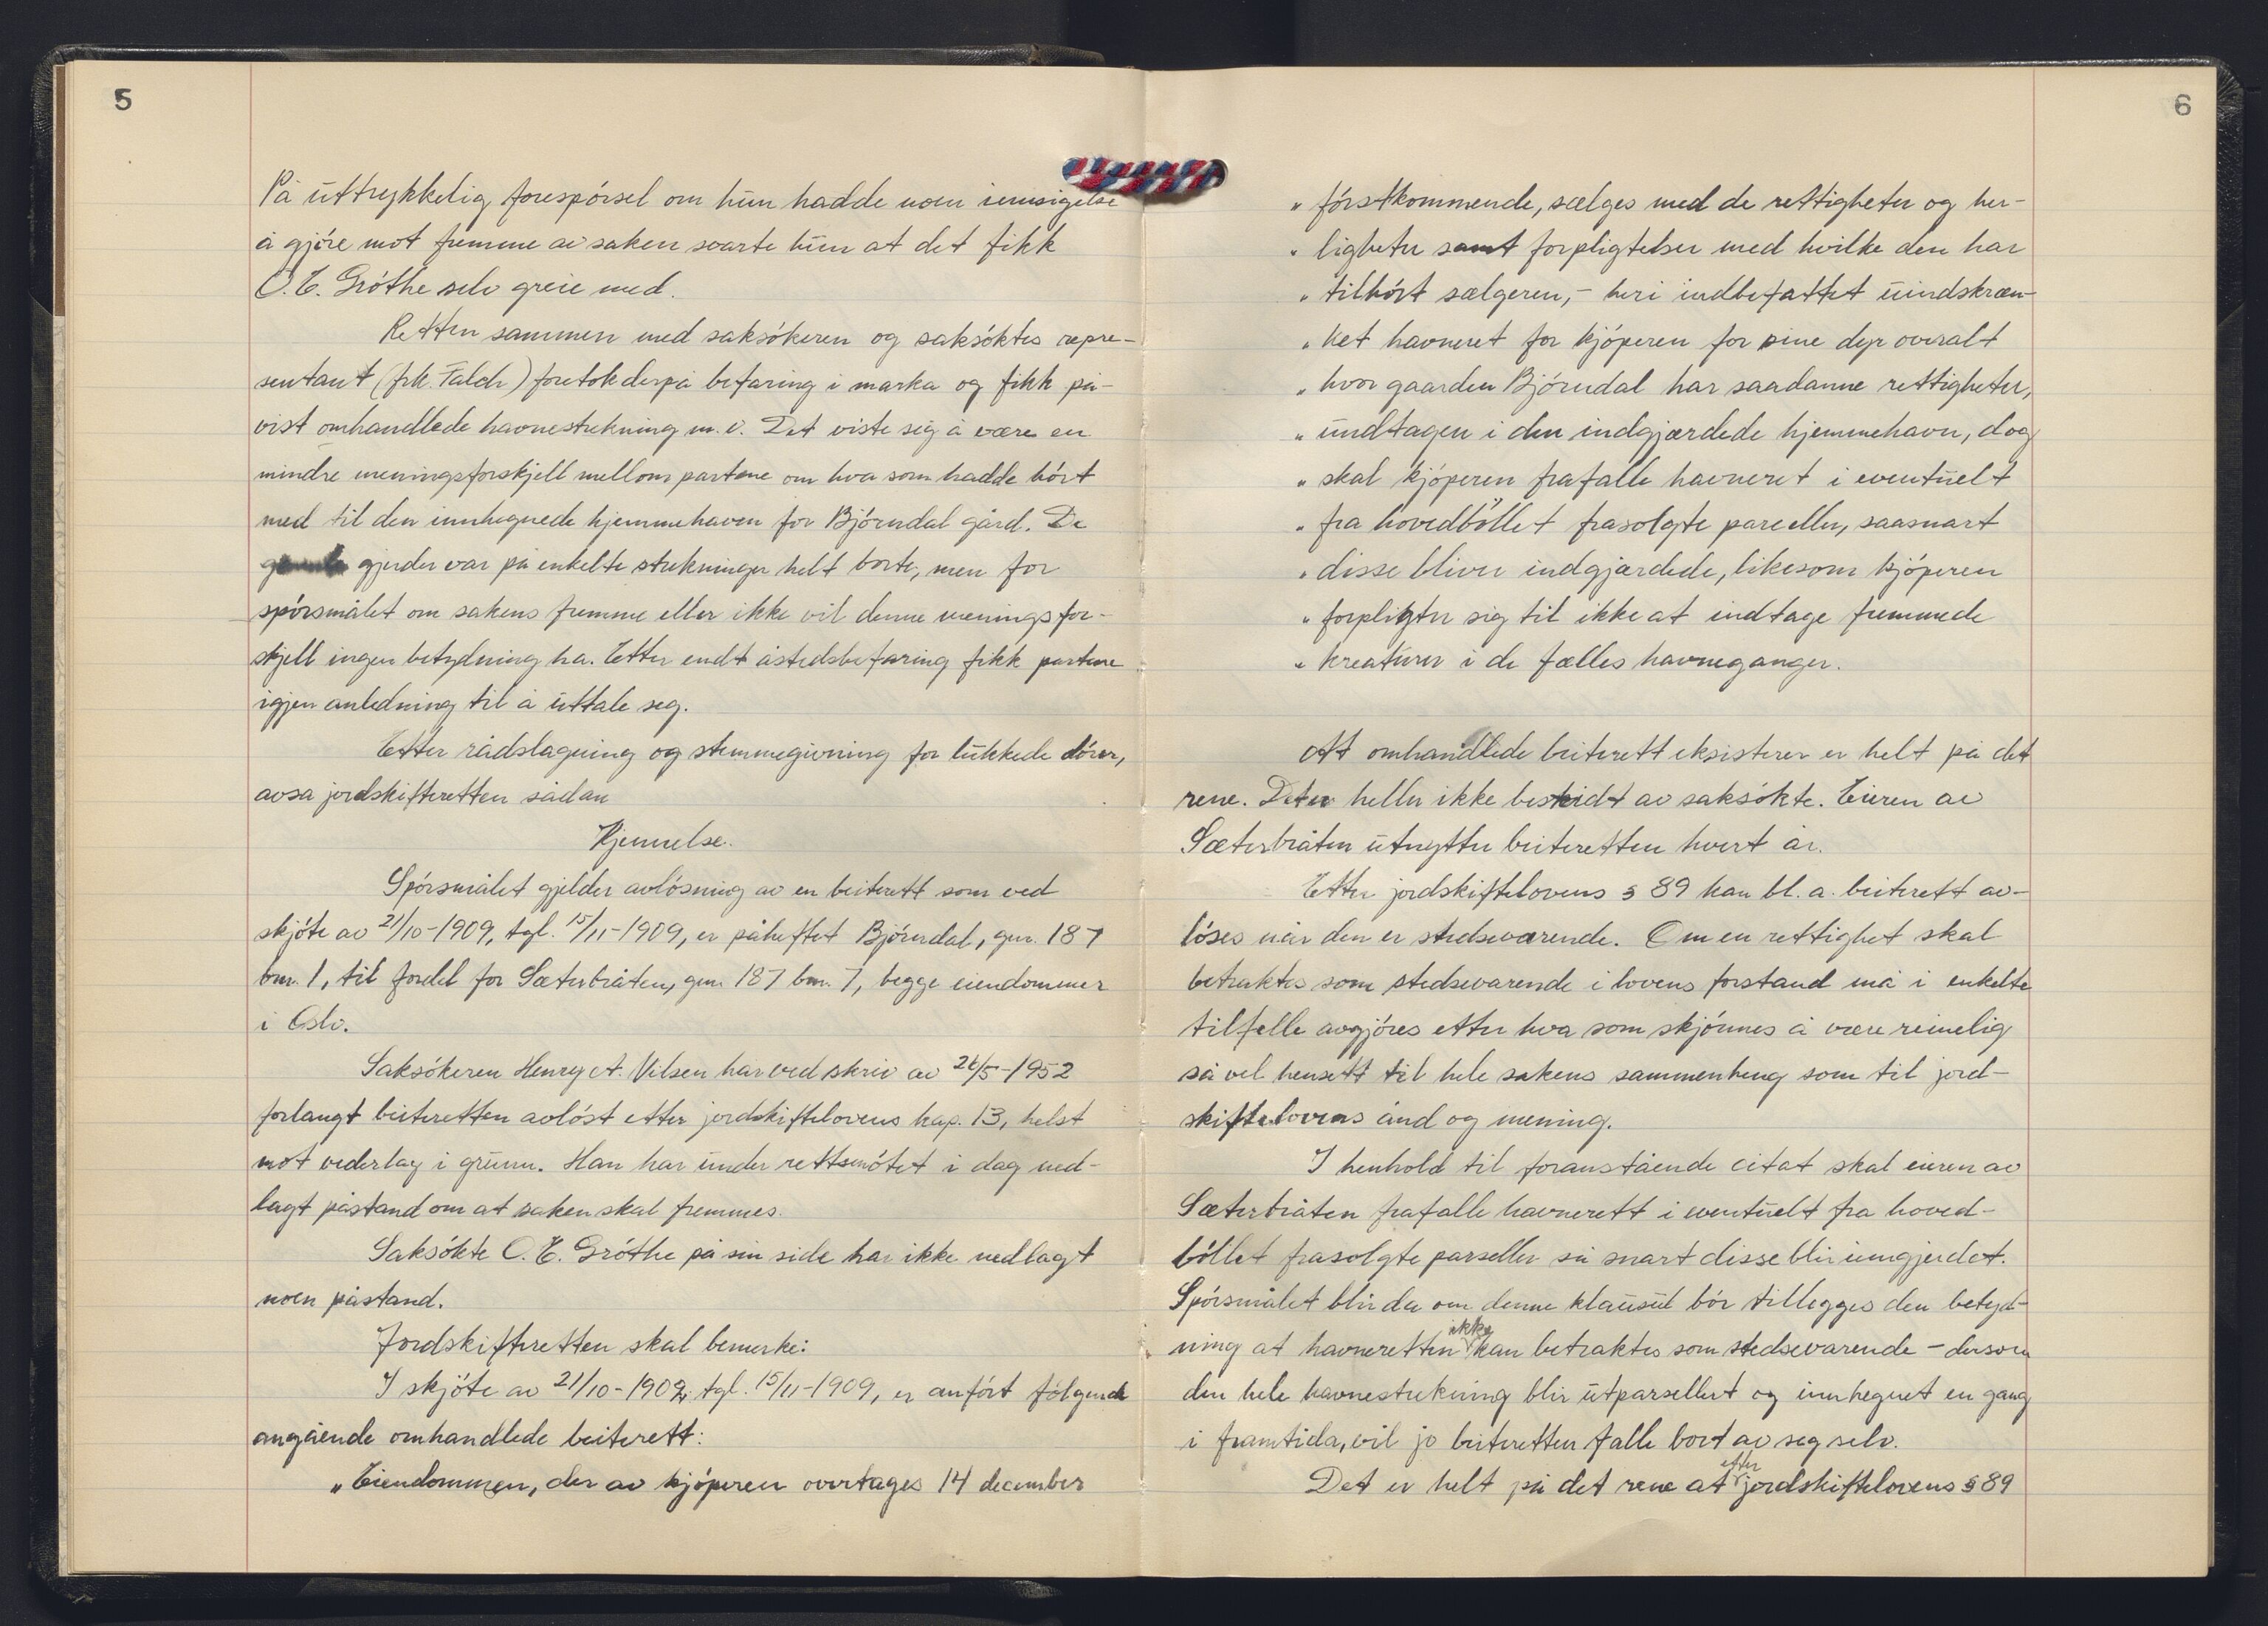 5
På uttrykkelig forespørsel om hun hadde noen innsigelse
å gjøre mot fremme av saken svarte hun at det fikk
O. E. Grøthe selv greie med.
Retten sammen med saksøkeren og saksøktes repre-
sentant (frk. Falch) foretok derpå befaring i marka og fikk på-
vist omhandlede havnestrekning m.v. Det viste sig å være en
mindre meningsforskjell mellom partene om hva som hadde hørt
med til den innhegnede hjemmehavn for Bjørndal gård. De
gjerder var på enkelte strekninger helt borte, men for
spørsmålet om sakens fremme eller ikke vil denne meningsfor-
skjell ingen betydning ha. Etter endt åstedsbefaring fikk partene
igjen anledning til å uttale seg.
Etter rådslagning og stemmegivning for lukkede dører,
avsa jordskifteretten sådan
Kjennelse.
Spørsmålet gjelder avløsning av en beiterett som ved
skjøte av 21/10-1909, tgl. 15/11-1909, er påheftet Bjørndal, gnr. 187
bnr. 1, til fordel for Sæterbråten, gnr. 187 bnr. 7, begge eiendommer
i Oslo.
Saksøkeren Henry A. Nilsen har ved skriv av 26/5-1952
forlangt beiteretten avløst etter jordskiftelovens kap. 13, helst
mot vederlag i grunn. Han har under rettsmøtet i dag ned-
lagt påstand om at saken skal fremmes.
Saksøkte O. E. Grøthe på sin side har ikke nedlagt
noen påstand.
Jordskifteretten skal bemerke:
I skjøte av 21/10-1909, tgl. 15/11-1909, er anført følgende
angående omhandlede beiterett:
„Eiendommen, der av kjøperen overtages 14 december
6
" førstkommende, sælges med de rettigheter og her-
" ligheter samt forpligtelser med hvilke den har
" tilhørt sælgeren, - heri indbefattet uindskræn-
" ket havneret for kjøperen for sine dyr overalt
" hvor gaarden Bjørndal har saadanne rettigheter,
" undtagen i den indgjærdede hjemmehavn, dog
" skal kjøperen frafalle havneret i eventuelt
" fra hovedbøllet frasolgte parceller, saasnart
" disse bliver indgjærdede, likesom kjøperen
" forpligter sig til ikke at indtage fremmede
" kreaturer i de fælles havneganger.
At omhandlede beiterett eksisterer er helt på det
rene. Det er heller ikke bestridt av saksøkte. Eieren av
Sæterbråten utnytter beiteretten hvert år.
Etter jordskiftelovens § 89 kan bl. a. beiterett av-
løses når den er stedsevarende. Om en rettighet skal
betraktes som stedsevarende i lovens forstand må i enkelte
tilfelle avgjøres etter hva som skjønnes å være rimelig
så vel hensett til hele sakens sammenheng som til jord-
skiftelovens ånd og mening.
I henhold til foranstående citat skal eieren av
Sæterbråten frafalle havnerett i eventuelt fra hoved-
bøllet frasolgte parseller så snart disse blir inngjerdet.
Spørsmålet blir da om denne klausul bør tillegges den betyd-
ning at havneretten ikke kan betraktes som stedsevarende - dersom
den hele havnestrekning blir utparsellert og innhegnet en gang
i framtida, vil jo beiteretten falle bort av seg selv.
Det er helt på det rene at etter jordskiftelovens § 89